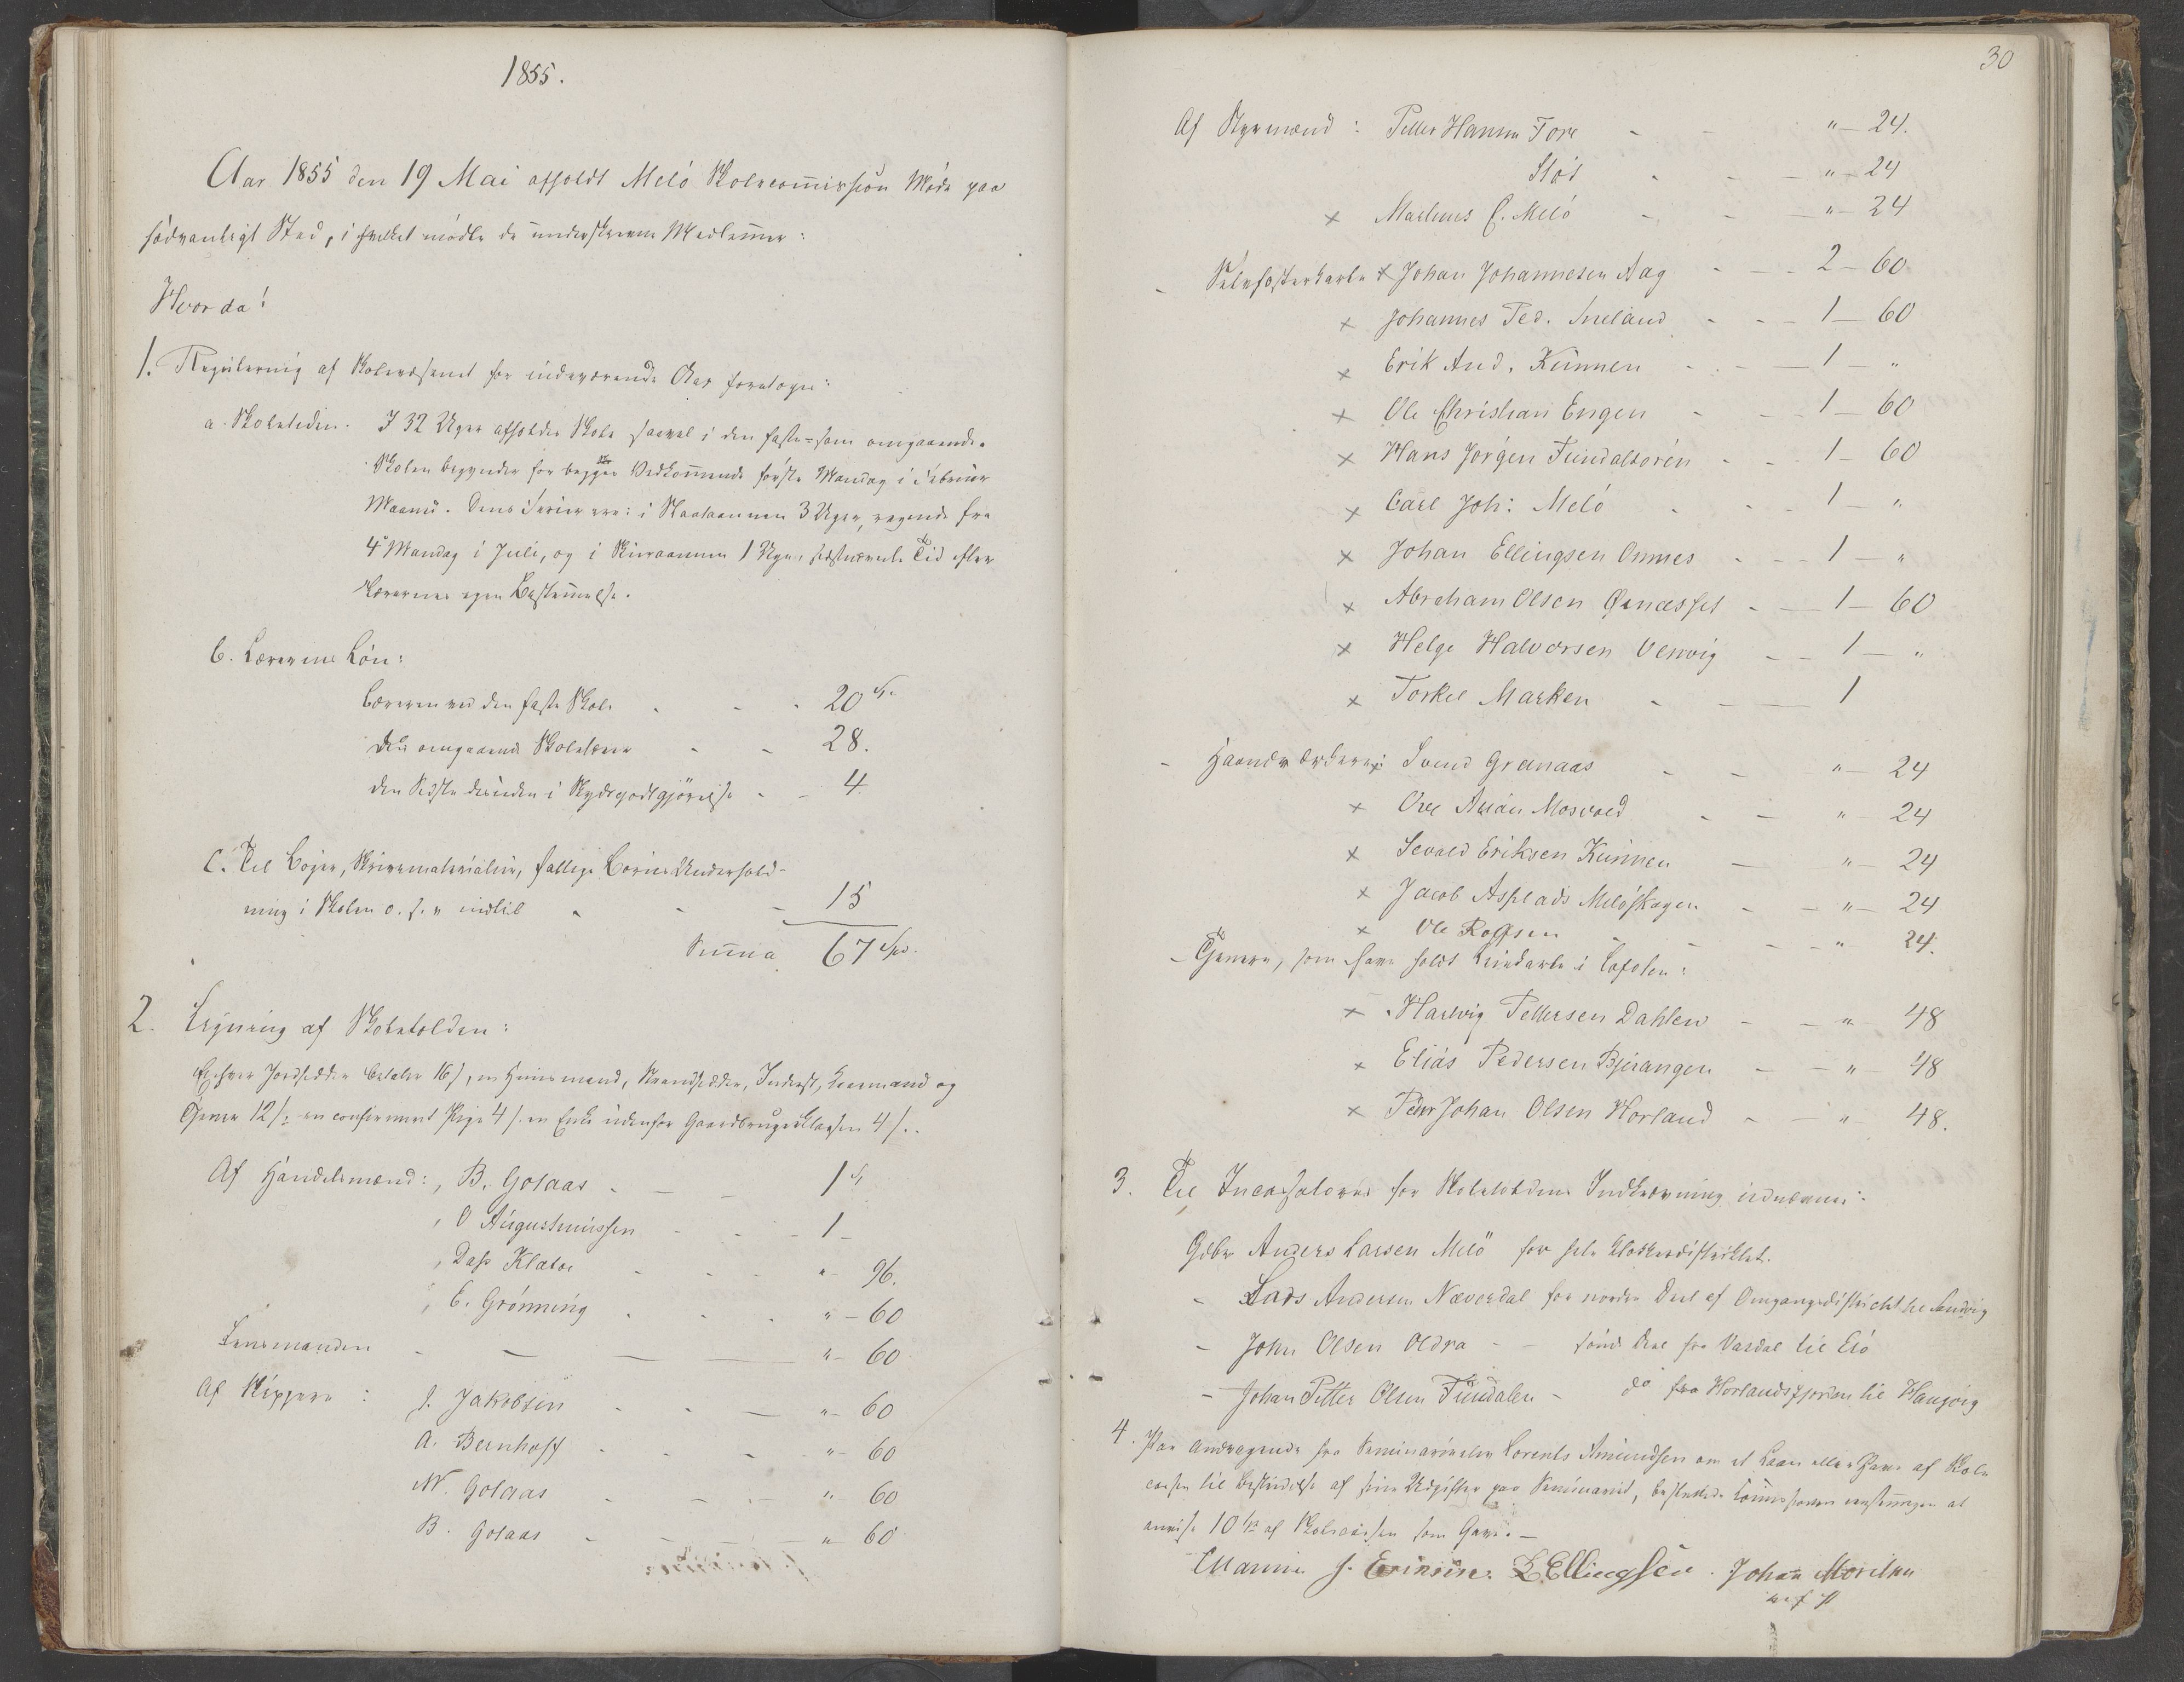 1855.
Aar 1855 den 19 Mai afholdt Melö Skolecommission Møde paa
sædvanligt Sted, i hvilket mødte de underskrevne Medlemmer:
Hvorda:
1. Regulering af Skolevæsenet for indeværende Aar foretoges:
a. Skoletiden. I 32 Uger afholdes Skole saavel i den faste- som omgaaende.
Skolen begynder for begges Vedkommende første Mandag i Februar
Maaned. Dens Ferier ere: i Slaataannen 3 Uger, regnede fra
4de Mandag i Juli, og i Skuraannen 1 Uge, sidstnævnte Tid efter
Lærernes egen Bestemmelse.
b. Lærernes Løn:
Læreren ved den faste Skole - - 20 Sp.
den omgaaende Skolelærer - - 28.
den Sidste desuden i Skydsgodtgjørelse - - 4.
C. Til Bøger, Skrivematerialier, fattige Børns Underhold-
ning i Skolen o. s. v. indtil - - 15
Summa 67 Spd.
2. Ligning af Skoletolden:
Enhver Jordsidder betaler 16 s, en Huusmand, Strandsidder, Inderst, Leiermand og
Tjener 12 s; en confirmeret Pige 4 s. en Enke udenfor Gaardbrugerklassen 4 s.
Af Handelsmænd: B. Golaas - - 1 Sp
O Augustinussen - - 1 -
Dass Klatoe - - " 96.
E. Grönning - - " - 60
Lensmanden - - " - 60
Af Skippere: J. Jakobsen - - " - 60
A. Bernhoff - - " - 60
N. Golaas - - " 60
B. Golaas - - " 60
30
Af Styrmænd: Petter Hansen Fore - - " - 24.
Støt - - " - 24
x Martinus C. Melö - - " - 24
x Johan Johannesen Aag - - 2 - 60
x Johannes Ped. - - 1 - 60
x Erik And. Kunnen - - 1 - "
x Ole Christian Engen - - 1 - 60
x Hans Jørgen - - 1 - 60
x Carl Joh: Melö - - 1 - "
x Johan Ellingsen Omnes - - 1 - "
x Abraham Olsen - - 1 - 60
x Helge Halvorsen - - 1 - "
x Torkel Marken - - 1
Haandværkere: x Svend Grønaas - - " - 24
x Ove Mosvold - - " - 24
x Sevald Eriksen Kunnen - " - 24
x Jacob Asplads Melöskogen - - " - 24
x Ole - - " 24.
Tjenere, som have holdt i Lofoten:
x Hartvig Pettersen Dahlen - - " 48
x Elias Pedersen Bjerangen - - " 48
x Peder Johan Olsen Horland - - " 48.
3. Til Incassatorer for Skoletoldens Indkrævning udnævnes:
Gdbr Anders Larsen Melö for hele Klokkerdistriktet.
- Lars Andersen Neverdal for nordre Deel af Omgangsdistriktet til
- John Olsen Oldra - - søndre Deel fra Vasdal til
- Johan Petter Olsen - do fra Horlandsfjorden til
4. Paa Andragende fra Seminarieelev Lorents Amundsen om et Laan eller Gave af Skole
cassen til Bestridelse af sine Udgifter paa Seminariet, besluttede Commissionen eenstemmigen at
anvise 10 Sp af Skolecassen som Gave. -
J. L Ellingsen. Johan